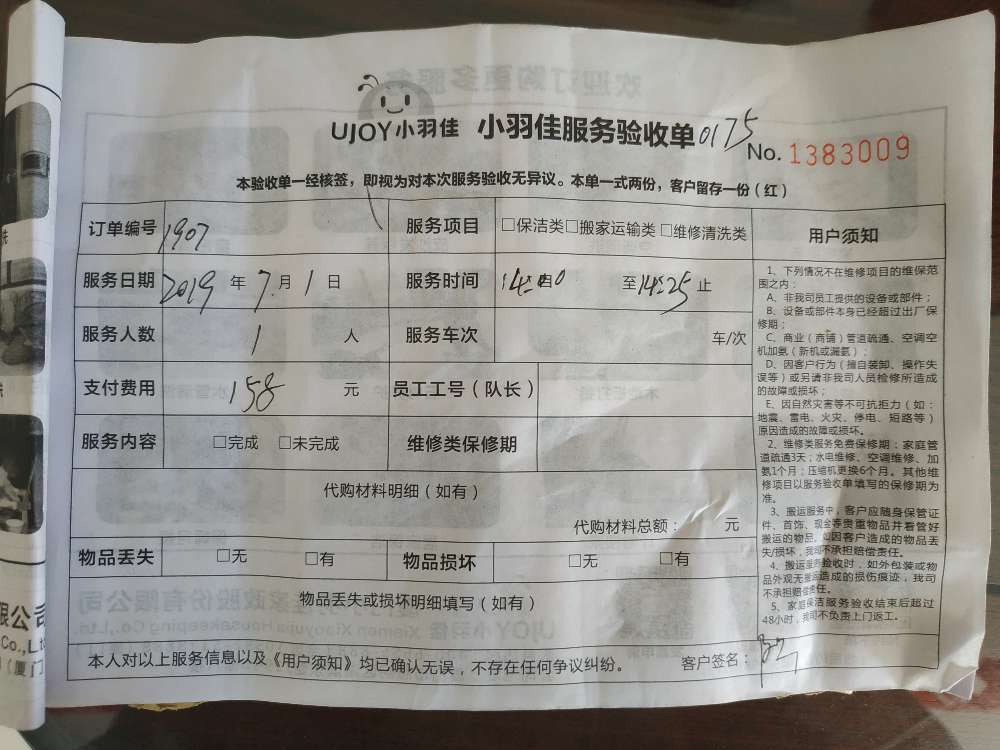 UJOY小羽佳 小羽佳服务验收单 0175
No. 1383009
本验收单一经核签，即视为对本次服务验收无异议。本单一式两份，客户留存一份（红）
订单编号 1907 服务项目 □保洁类□搬家运输类□维修清洗类
服务日期 2019 年 7 月 1 日 服务时间 至14:25止
服务人数 1 人 服务车次 车/次
支付费用 158 元 员工工号（队长）
服务内容 □完成 □未完成 维修类保修期
代购材料明细（如有）
代购材料总额： 元
物品丢失 □无 □有 物品损坏 □无 □有
物品丢失或损坏明细填写（如有）
本人对以上服务信息以及《用户须知》均已确认无误，不存在任何争议纠纷。 客户签名：
用户须知
1、下列情况不在维修项目的维保范
围之内：
A、非我司员工提供的设备或部件；
B、设备或部件本身已经超过出厂保
修期；
C、商业（商铺）管道疏通、空调空
机加氨（新机或漏氨）；
D、因客户行为（擅自装卸、操作失
误等）或另请非我司人员检修所造成
的故障或损坏；
E、因自然灾害等不可抗拒力（如：
地震、雷电、火灾、停电、短路等）
原因造成的故障或损坏。
2、维修类服务免费保修期：家庭管
道疏通3天；水电维修、空调维修、加
氨1个月；压缩机更换6个月。其他维
修项目以服务验收单填写的保修期为
准。
3、搬运服务中，客户应随身保管证
件、首饰、现金等贵重物品并看管好
搬运的物品，如因客户造成的物品丢
失/损坏，我司不承担赔偿责任。
4、搬运服务验收时，如外包装或物
品外观无搬运造成的损伤痕迹，我司
不承担赔偿责任。
5、家庭保洁服务验收结束后超过
48小时，我司不负责上门返工。